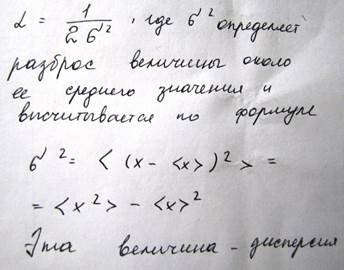 α = 1/(2σ²), где σ² определяет
разброс величины около
ее среднего значения и
высчитывается по формуле
σ² = <(x - <x>)²> =
= <x²> - <x>²
Эта величина - дисперсия